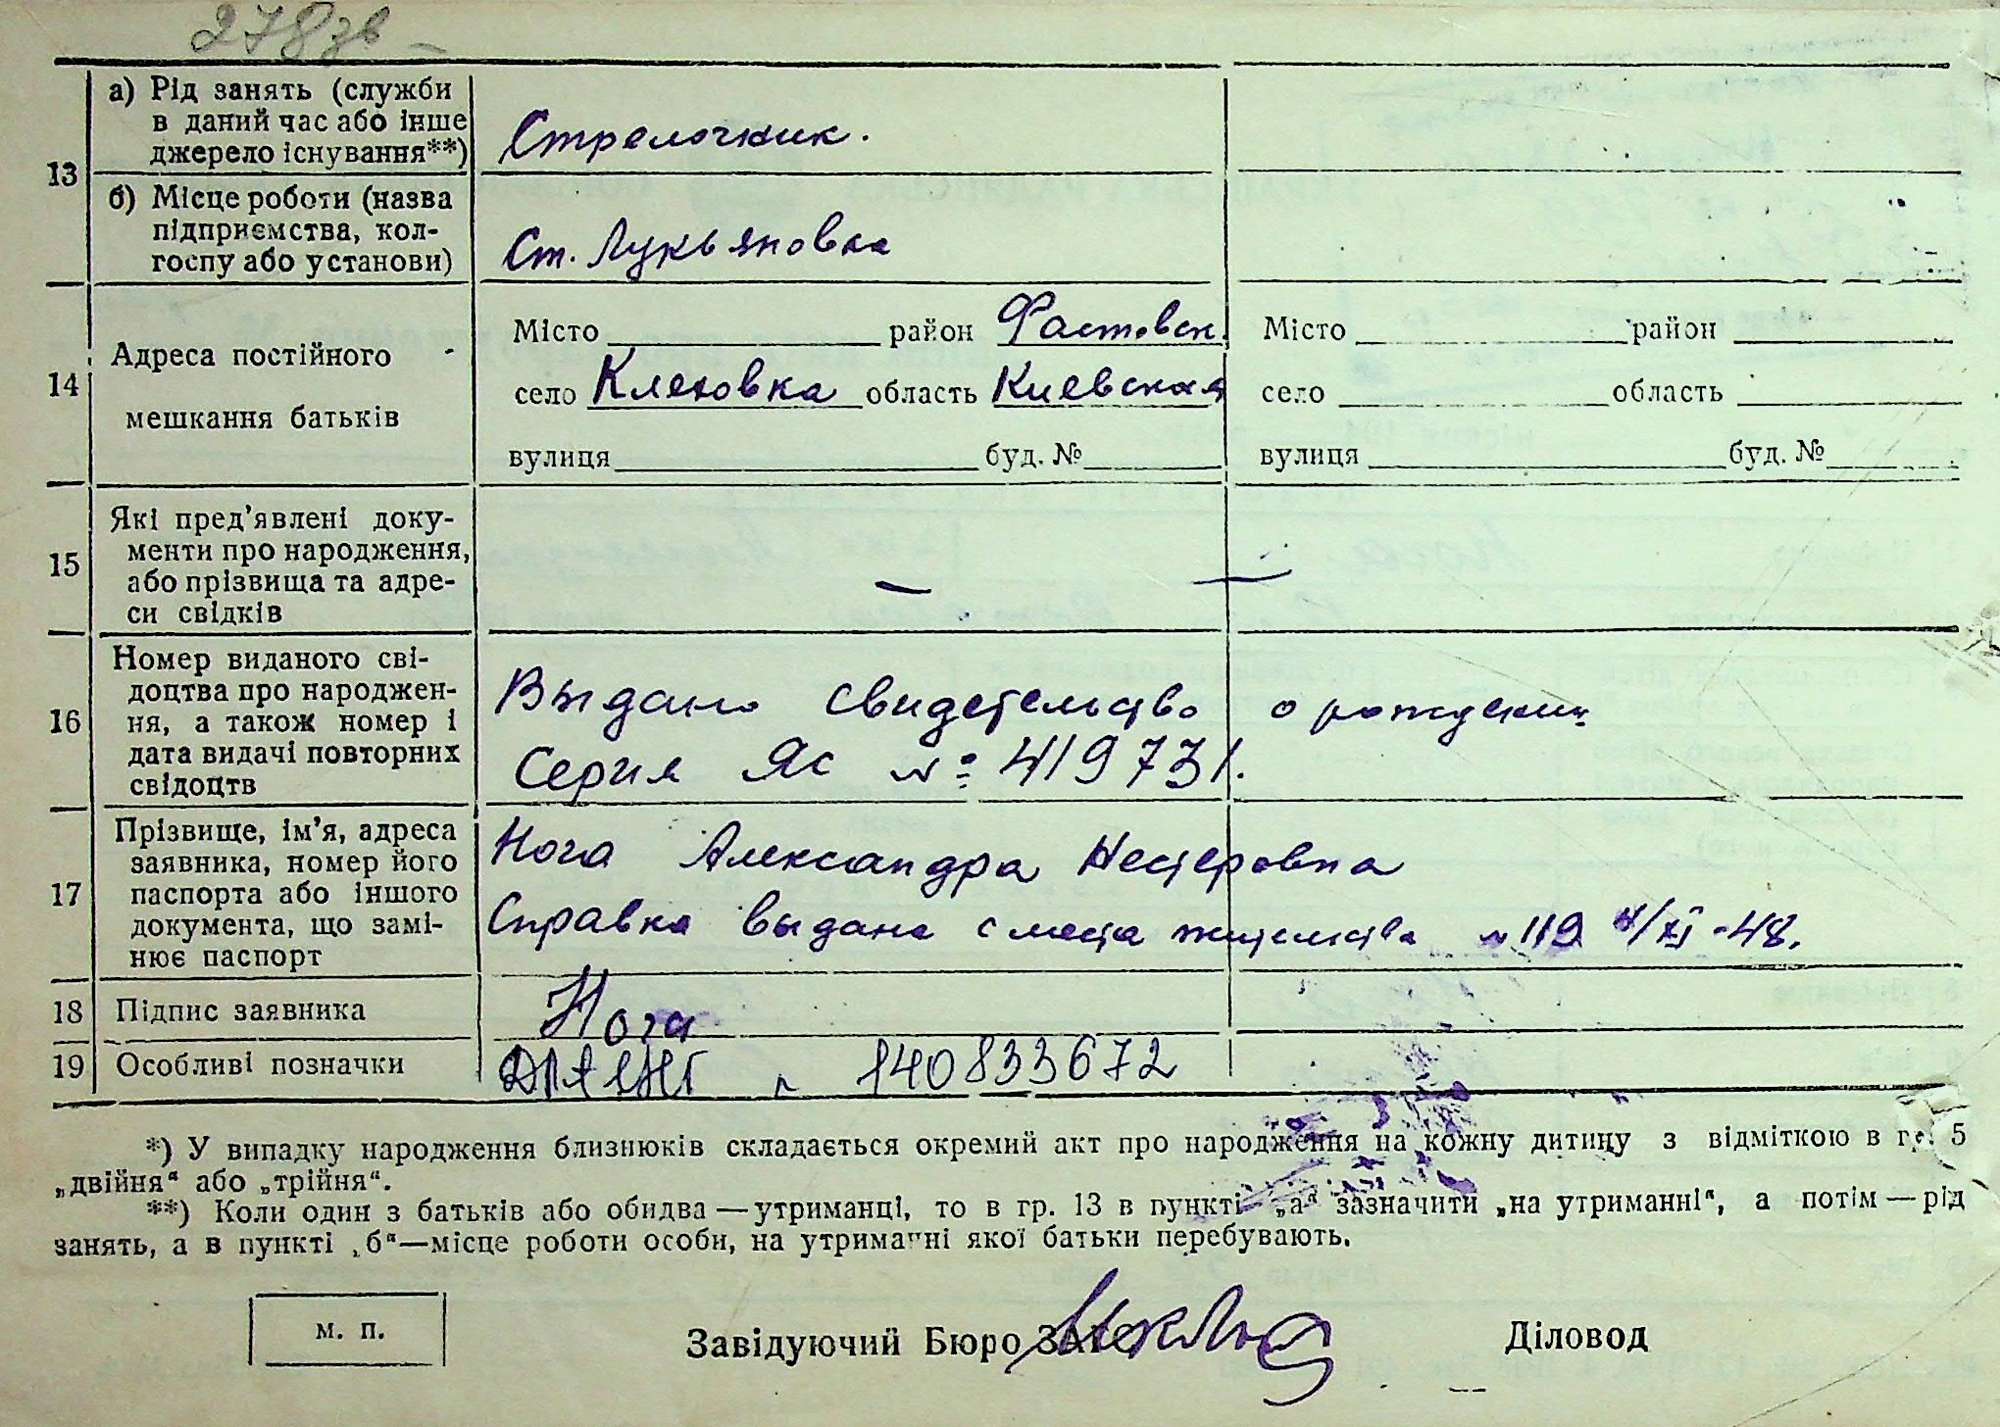 278зв
13
а) Рід занять (служби
в даний час або інше
джерело існування**)
Стрелочник.
б) Місце роботи (назва
підприємства, кол-
госпу або установи)
Ст. Лукьяновка
14
Адреса постійного
мешкання батьків
Місто район Фастовск.
село Клеховка область Киевская
вулиця буд. №
Місто район
село область
вулиця буд. №
15
Які пред'явлені доку-
менти про народження,
або прізвища та адре-
си свідків
— —
16
Номер виданого сві-
доцтва про народжен-
ня, а також номер і
дата видачі повторних
свідоцтв
Выдано свидетельство о рождении
Серия Яс № 419731.
17
Прізвище, ім'я, адреса
заявника, номер його
паспорта або іншого
документа, що замі-
нює паспорт
Нога Александра Нестеровна
Справка выдана с места жительства № 119 4/XI-48.
18
Підпис заявника
Нога
19
Особливі позначки
140833672
*) У випадку народження близнюків складається окремий акт про народження на кожну дитину з відміткою в гр. 5
„двійня“ або „трійня“.
**) Коли один з батьків або обидва — утриманці, то в гр. 13 в пункті „а“ зазначити „на утриманні“, а потім — рід
занять, а в пункті „б“—місце роботи особи, на утриманні якої батьки перебувають.
м. п.
Завідуючий Бюро ЗАГС
Діловод